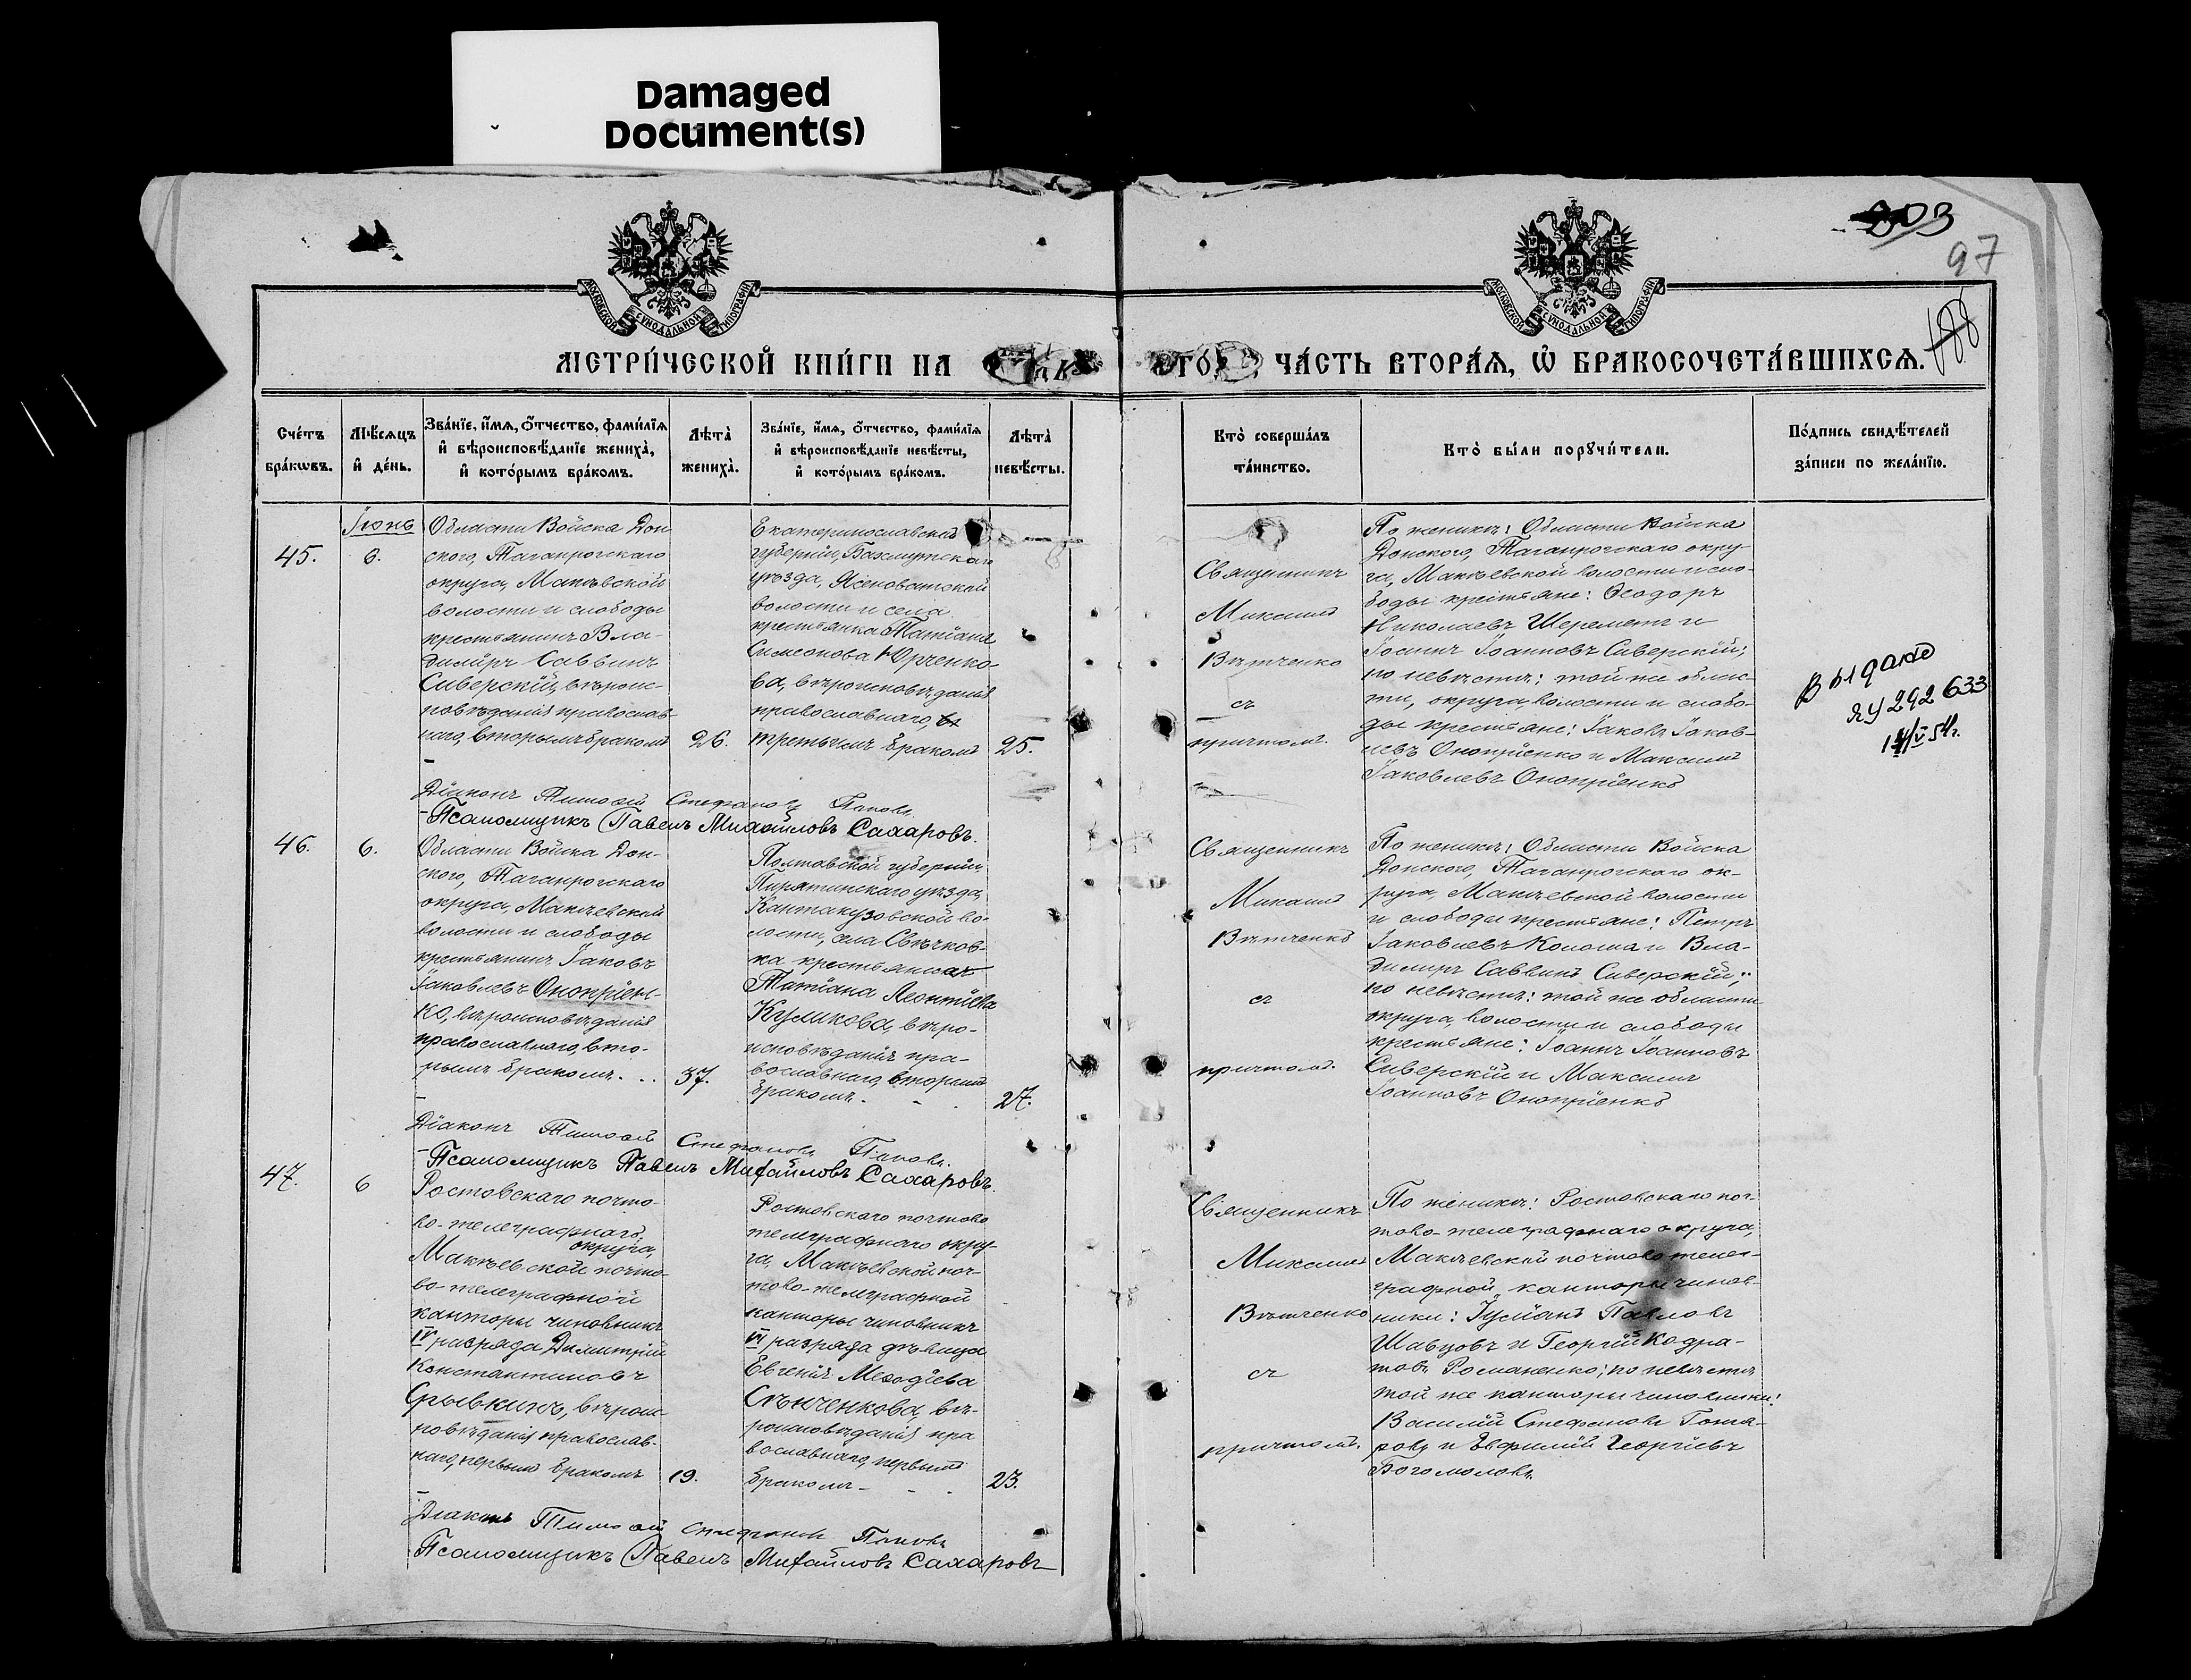 Damaged
Document(s)
203
97
188
МОСКОВСКОЙ СѴНОДАЛЬНОЙ ТИПОГРАФІИ
МОСКОВСКОЙ СѴНОДАЛЬНОЙ ТИПОГРАФІИ
МЕТРИ́ЧЕСКОЙ КНИ́ГИ НА
ЧА́СТЬ ВТОРА́Ѧ, Ѽ БРАКОСОЧЕТА́ВШИХСѦ.
Сче́тъ бра́кѡвъ.
Мѣ́сѧцъ и҆ де́нь.
Зва́нїе, и҆́мѧ, ѻ҆́тчество, фамѝлїѧ и҆ вѣроисповѣ́данїе женихà, и҆ кото́рымъ бра́комъ.
Лѣтà женихà.
Зва́нїе, и҆́мѧ, ѻ҆́тчество, фами́лїѧ и҆ вѣроисповѣ́данїе невѣ́сты, и҆ кото́рымъ бра́комъ.
Лѣтà невѣ́сты.
Кто̀ соверша́лъ та́инство.
Кто̀ бы́ли порꙋчи́тели.
По́дпись свидѣ́телей за́писи по жела́нїю.
Іюнь
45.
6.
Области Войска Дон
ского, Таганрогскаго
округа, Макѣевской
волости и слободы
крестьянинъ Вла-
димiръ Саввинъ
Сиверскiй, вѣроис-
повѣданiя православ-
наго, вторымъ бракомъ
26.
Екатеринославской
губернiи, Бахмутскаго
уѣзда, Ясеноватской
волости и села
крестьянка Татiана
Симеонова Юрченко-
ва, вѣроисповѣданiя
православнаго,
третьимъ бракомъ
25.
Священникъ
Михаилъ
Вѣтченко
съ
причтомъ.
По женихѣ: Области Войска
Донского, Таганрогскаго окру-
га, Макѣевской волости и сло-
боды крестьяне: Ѳеодоръ
Николаевъ Шереметъ и
Іоаннъ Іоанновъ Сиверскiй;
по невѣстѣ: той же облас-
ти, округа, волости и слобо-
ды крестьяне: Іаковъ Іаков-
левъ Оноприенко и Максимъ
Іаковлевъ Оноприенко
Выдано
ЯУ 292633
14/V 54г.
Дiаконъ Тимоѳей Стефановъ Поповъ
Псаломщикъ Павелъ Михайловъ Сахаровъ.
46.
6.
Области Войска Дон-
ского, Таганрогскаго
округа, Макѣевской
волости и слободы
крестьянинъ Іаковъ
Іаковлевъ Оноприен-
ко, вѣроисповѣданiя
православнаго, вто-
рымъ бракомъ. . .
37.
Полтавской губернiи,
Пирятинскаго уѣзда,
Кантакузовской во-
лости, села Свѣчков-
ка крестьянка
Татiана Леонтiева
Куликова, вѣро-
исповѣданiя пра-
вославнаго, вторымъ
бракомъ.
27.
Священникъ
Михаилъ
Вѣтченко
съ
причтомъ.
По женихѣ: Области Войска
Донского, Таганрогскаго ок-
руга, Макѣевской волости
и слободы крестьяне: Петръ
Іаковлевъ Колоша и Вла-
димiръ Саввинъ Сиверскiй;
по невѣстѣ: той же области
округа, волости и слободы
крестьяне: Іоаннъ Іоанновъ
Сиверскiй и Максимъ
Іоанновъ Оноприенко
Дiаконъ Тимоѳей Стефановъ Поповъ.
Псаломщикъ Павелъ Михайловъ Сахаровъ.
47.
6
Ростовскаго почто-
во-телеграфнаго
округа,
Макѣевской почто-
во-телеграфной
конторы чиновникъ
IV разряда Димитрiй
Константиновъ
Срывкинъ, вѣроис-
повѣданiя православ-
наго, первымъ бракомъ
19.
Ростовскаго почтово
телеграфнаго окру-
га, Макѣевской поч-
тово-телеграфной
конторы чиновникъ
VI разряда дѣвица
Евгенiя Меѳодiева
вѣ-
роисповѣданiя пра
вославнаго, первымъ
бракомъ
23.
Священникъ
Михаилъ
Вѣтченко
съ
причтомъ.
По женихѣ: Ростовскаго поч-
тово-телеграфнаго округа,
Макѣевской почтово телег-
рафной конторы чинов-
ники: Павловъ
Шавцовъ и Георгiй Кодра-
товъ Романенко; по невѣстѣ
той же конторы чиновники:
Василiй Стефановъ Гонча-
ровъ и Евфимiй Георгiевъ
Богомоловъ
Дiаконъ Тимоѳей Стефановъ Поповъ
Псаломщикъ Павелъ Михайловъ Сахаровъ